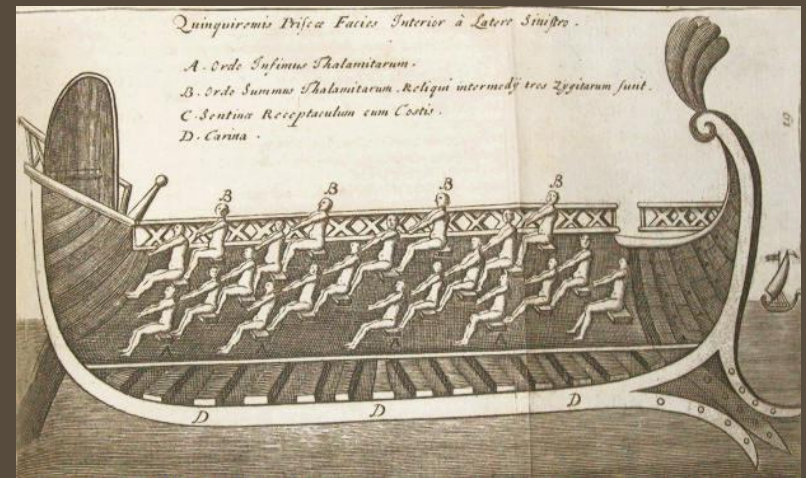 Quinquiremis Priscæ Facies Interior à Latere Sinistro.
A. Ordo Infimus Thalamitarum.
B. Ordo Summus Thalamitarum. Reliqui intermedij tres Zygitarum sunt.
C. Sentinæ Receptaculum cum Costis.
D. Carina.
19
B B B B
A A A A
D D D